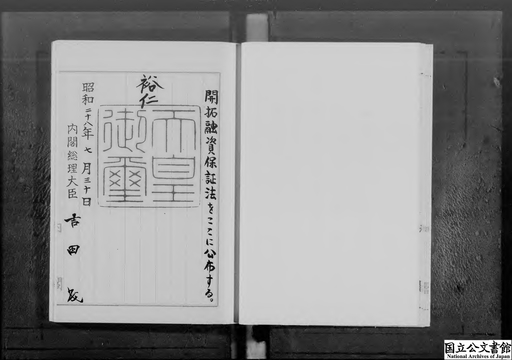 開拓融資保証法をここに公布する。
裕仁
天皇
御璽
昭和二十八年七月三十日
内閣総理大臣 吉田茂
国立公文書館
National Archives of Japan